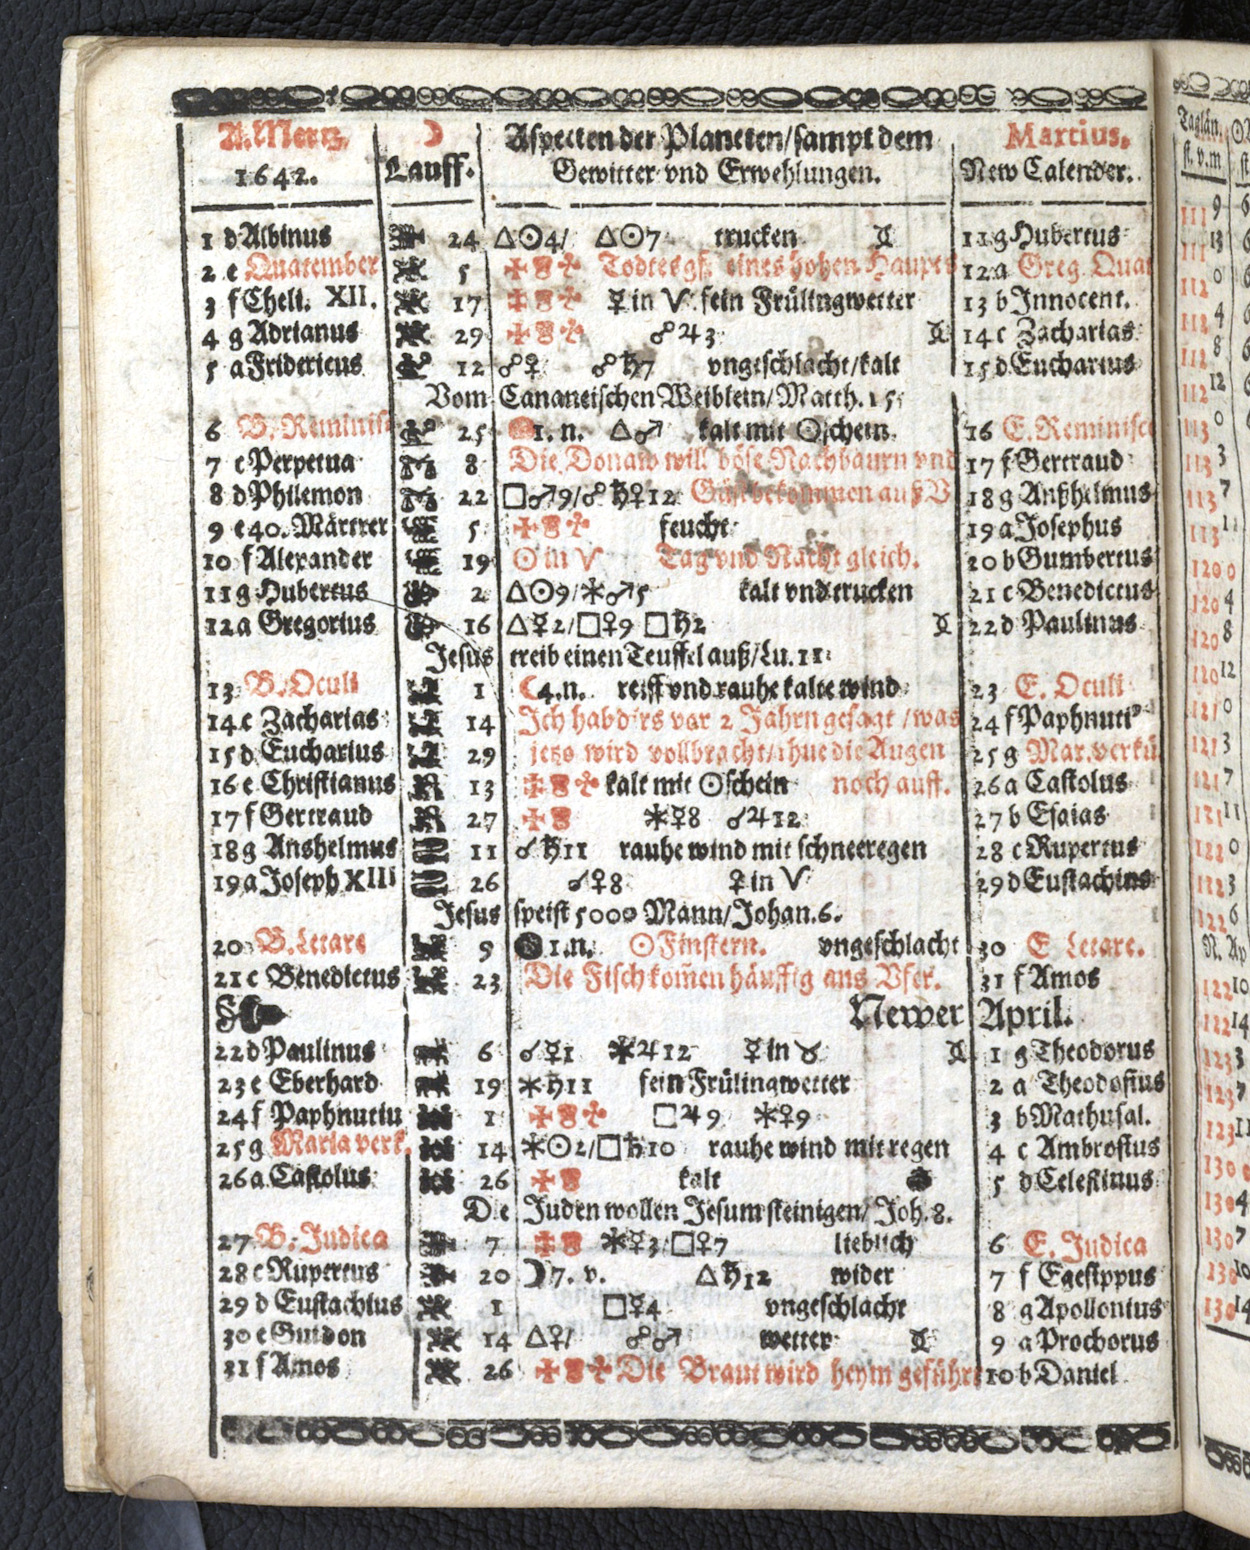 A. Mertz, ☽ Aspecten der Planeten/sampt dem Martius,
1642. Lauff. Gewitter vnd Erwehlungen. New Calender.
1 d Albinus 24 △☉4/ △☉7 trucken 11 g Hubertus
2 e Quatember 5 Todtesgf. eines hohen Haupts 12 a Greg. Quat
3 f Cheli. XII. 17 ☿ in ♈ fein Frülingwetter 13 b Innocent.
4 g Adrianus 29 ☍♃3 14 c Zacharias
5 a Fridericus 12 ☍♀ ☍♄7 vngeschlacht/kalt 15 d Eucharius
Vom Cananeischen Weiblein/Matth. 15.
6 B. Reminisc 25 1. n. △♂ kalt mit ☉schein. 16 E. Reminisce
7 c Perpetua 8 Die Donaw will böse Nachbaurn vnd 17 f Gertraud
8 d Philemon 22 □♂9/☍♄♀12 Gäst bekommen auß V 18 g Anßhelmus
9 e 40. Märtrer 5 feucht 19 a Josephus
10 f Alexander 19 ☉ in ♈ Tag vnd Nacht gleich. 20 b Gumbertus
11 g Hubertus 2 △☉9/⚹♂5 kalt vnd trucken 21 c Benedictus
12 a Gregorius 16 △☿2/□♀9 □♄2 22 d Paulinus
Jesus treib einen Teuffel auß/Lu. 11.
13 B. Oculi 1 ☾4. n. reiff vnd rauhe kalte wind 23 E. Oculi
14 c Zacharias 14 Ich hab dirs vor 2 Jahrn gesagt/was 24 f Paphnuti⁹
15 d Eucharius 29 jetzo wird vollbracht/thue die Augen 25 g Mar. verkü
16 e Christianus 13 kalt mit ☉schein noch auff. 26 a Castolus
17 f Gertraud 27 ⚹☿8 ☌♃12 27 b Esaias
18 g Anshelmus 11 ☌♄11 rauhe wind mit schneeregen 28 c Rupertus
19 a Joseph XIII 26 ☌♀8 ♀ in ♈ 29 d Eustachius
Jesus speist 5000 Mann/Johan. 6.
20 B. Letare 9 1. n. ☉Finstern. vngeschlacht 30 E Letare.
21 c Benedictus 23 Die Fisch kom̃en häuffig ans Vfer. 31 f Amos
Newer April.
22 d Paulinus 6 ☌☿1 ⚹♃12 ☿ in ♉ 1 g Theodorus
23 e Eberhard 19 ⚹♄11 fein Frülingwetter 2 a Theodosius
24 f Paphnutiu 1 □♃9 ⚹♀9 3 b Mathusal.
25 g Maria verk. 14 ⚹☉2/□♄10 rauhe wind mit regen 4 c Ambrosius
26 a Castolus 26 kalt 5 d Celestinus
Die Juden wollen Jesum steinigen/Joh. 8.
27 B. Judica 7 ⚹☿3/□♀7 lieblich 6 E. Judica
28 c Rupertus 20 ☽7. v. △♄12 wider 7 f Egesippus
29 d Eustachius 1 □☿4 vngeschlacht 8 g Apollonius
30 e Guidon 14 △♀/ ☍♂ wetter 9 a Prochorus
31 f Amos 26 Die Braut wird heym geführt 10 b Daniel